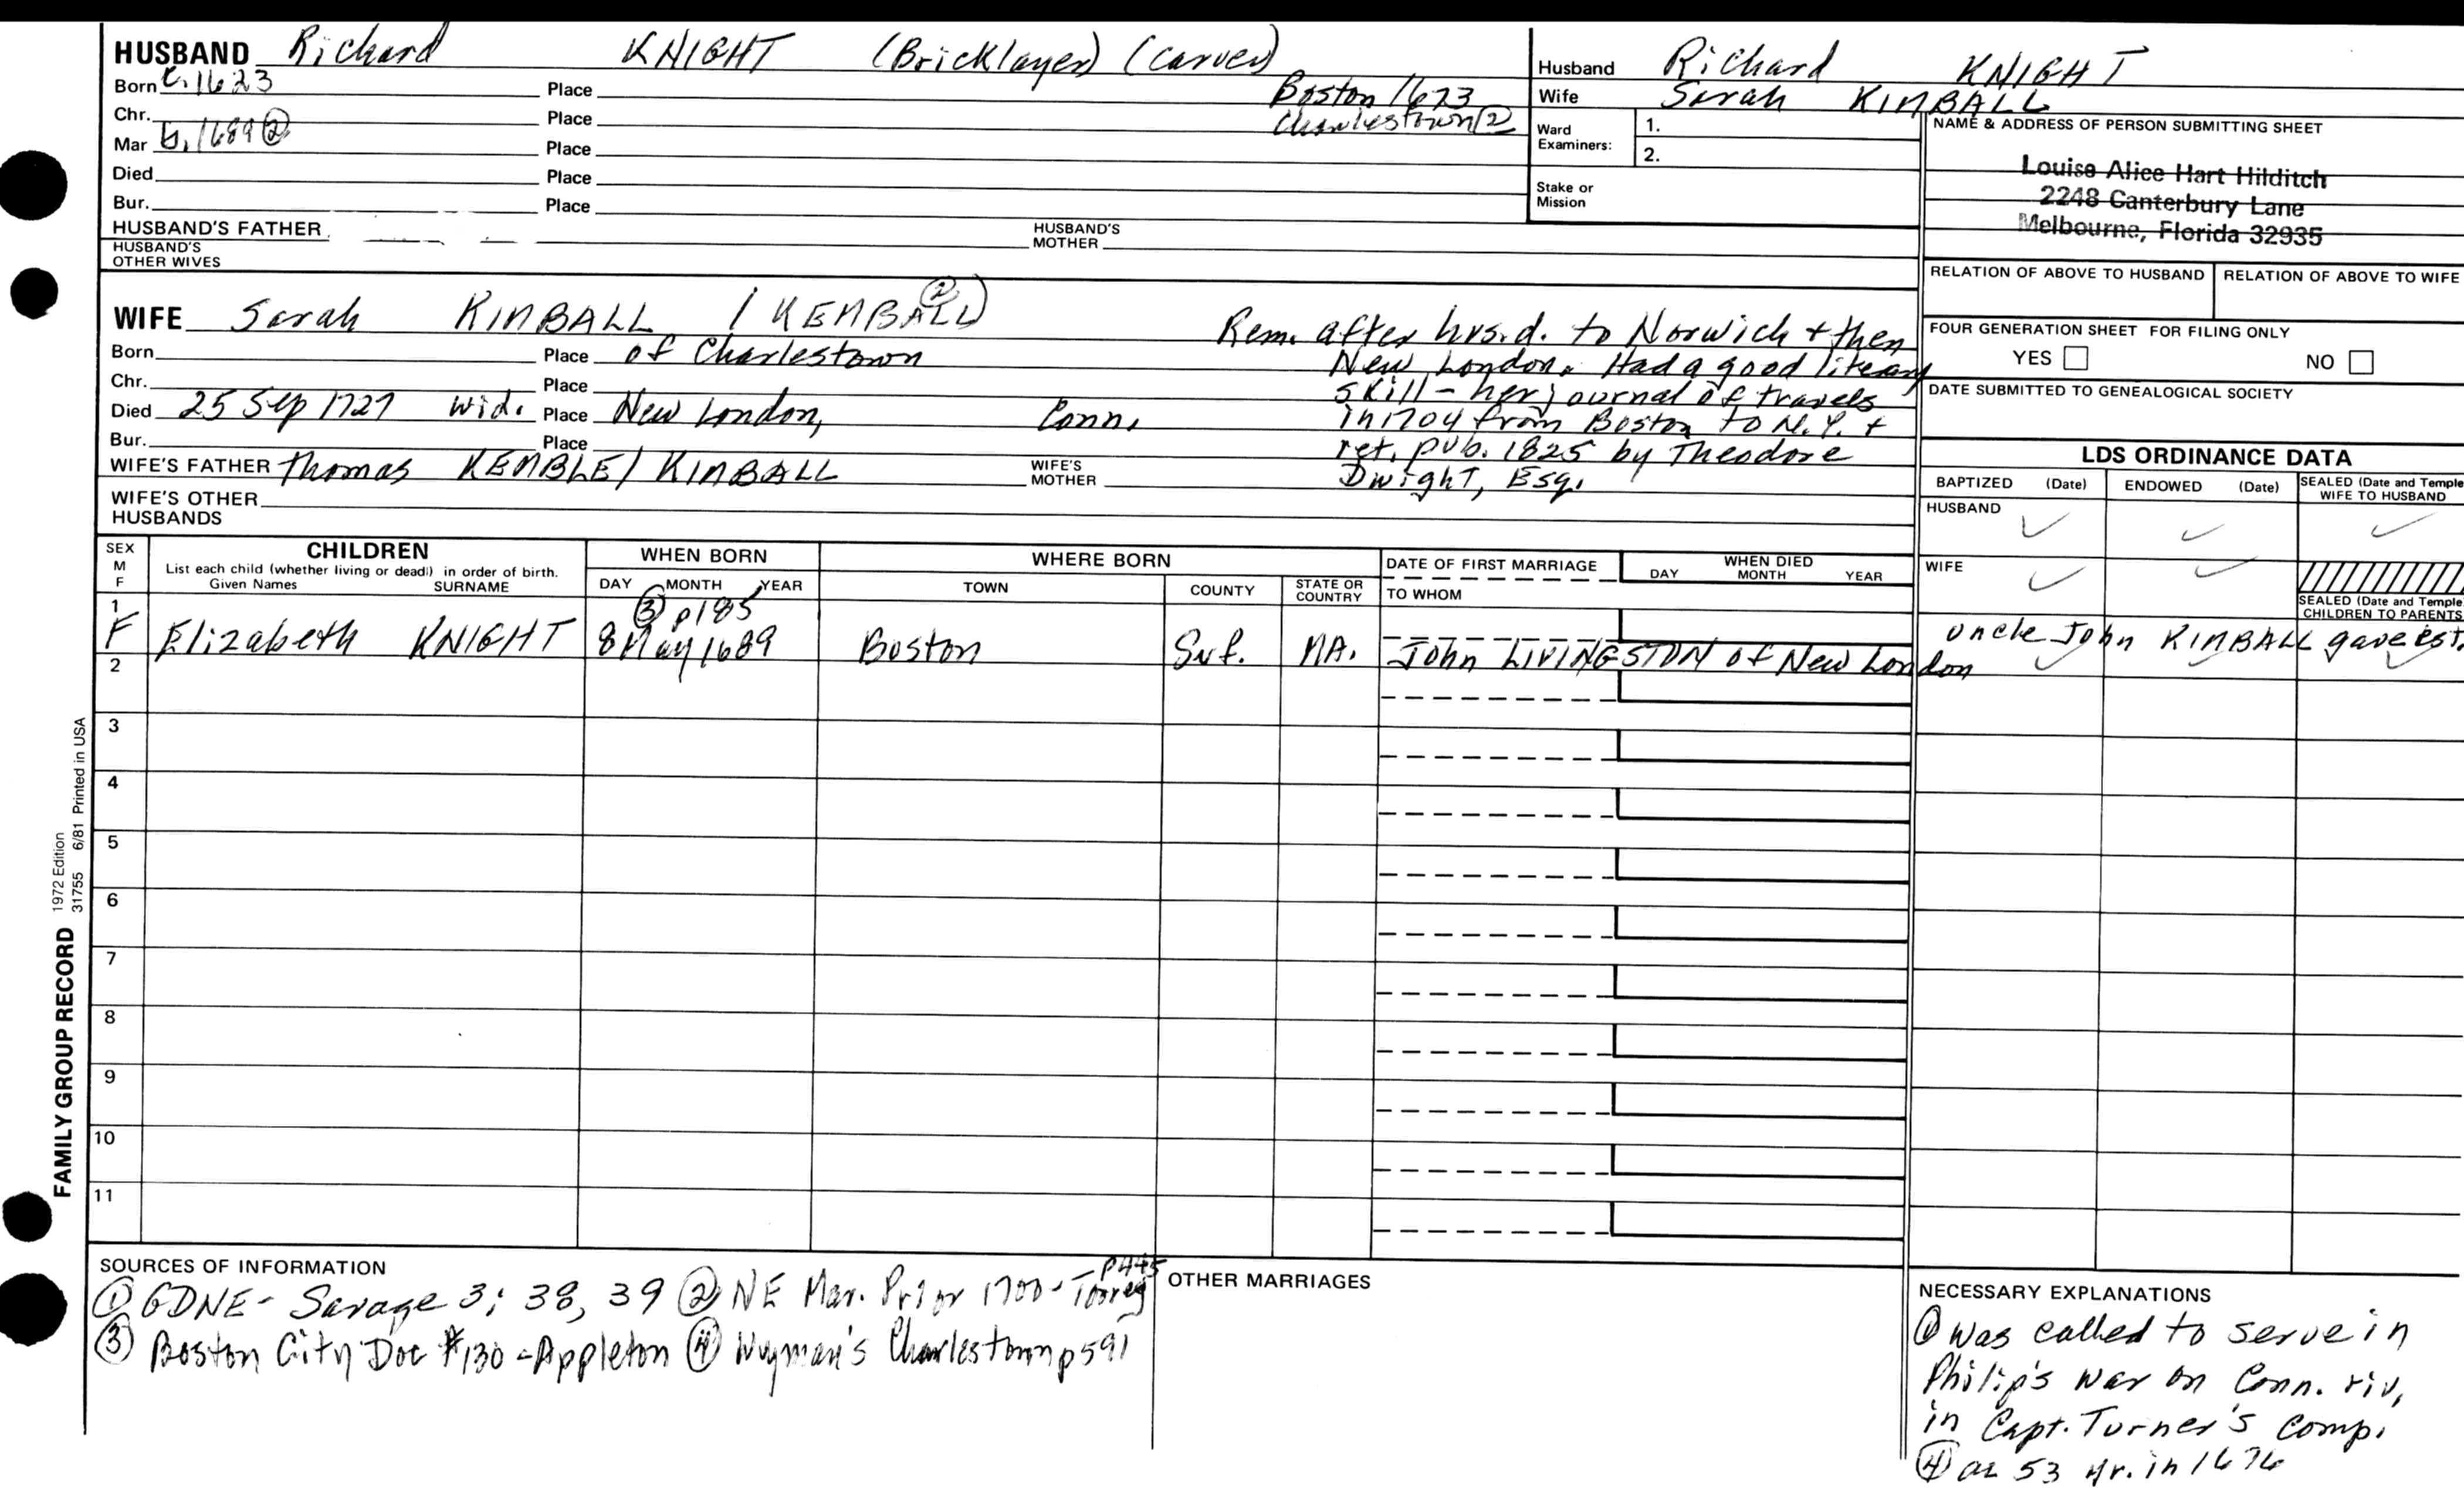 HUSBAND Richard KNIGHT (Bricklayer) (carver)
Born c. 1623 Place Boston 1673
Chr. Place Charlestown ②
Mar b. 1689 ② Place
Died Place
Bur. Place
HUSBAND'S FATHER HUSBAND'S MOTHER
HUSBAND'S OTHER WIVES
Husband Richard KNIGHT
Wife Sarah KIMBALL
Ward Examiners: 1.
2.
Stake or Mission
NAME & ADDRESS OF PERSON SUBMITTING SHEET
Louise Alice Hart Hilditch
2248 Canterbury Lane
Melbourne, Florida 32935
RELATION OF ABOVE TO HUSBAND RELATION OF ABOVE TO WIFE
FOUR GENERATION SHEET FOR FILING ONLY
YES NO
DATE SUBMITTED TO GENEALOGICAL SOCIETY
WIFE Sarah KIMBALL / KEMBALL ②)
Born Place of Charlestown
Chr. Place
Died 25 Sep 1727 wid. Place New London, Conn.
Bur. Place
WIFE'S FATHER Thomas KEMBLE / KIMBALL WIFE'S MOTHER
WIFE'S OTHER HUSBANDS
Rem. after hus.d. to Norwich + then
New London. Had a good literary
skill - her journal of travels
in 1704 from Boston to N.Y. +
ret. pub. 1825 by Theodore
Dwight, Esq.
LDS ORDINANCE DATA
BAPTIZED (Date) ENDOWED (Date) SEALED (Date and Temple) WIFE TO HUSBAND
HUSBAND
WIFE
SEALED (Date and Temple) CHILDREN TO PARENTS
SEX M F
CHILDREN
List each child (whether living or dead) in order of birth.
Given Names SURNAME
WHEN BORN
DAY MONTH YEAR
WHERE BORN
TOWN COUNTY STATE OR COUNTRY
DATE OF FIRST MARRIAGE
TO WHOM
WHEN DIED
DAY MONTH YEAR
1 ③ p185
F Elizabeth KNIGHT 8 May 1689 Boston Suf. MA. John LIVINGSTON of New London
uncle John KIMBALL gave est.
2
3
4
5
6
7
8
9
10
11
FAMILY GROUP RECORD 1972 Edition
31755 6/81 Printed in USA
SOURCES OF INFORMATION
① GDNE - Savage 3; 38, 39 ② NE Mar. Prior 1700 - Torrey p445
③ Boston City Doc #130 - Appleton ④ Wyman's Charlestown p591
OTHER MARRIAGES
NECESSARY EXPLANATIONS
① was called to serve in
Philip's war on Conn. riv.
in Capt. Turner's comp.
④ ae 53 yr. in 1676